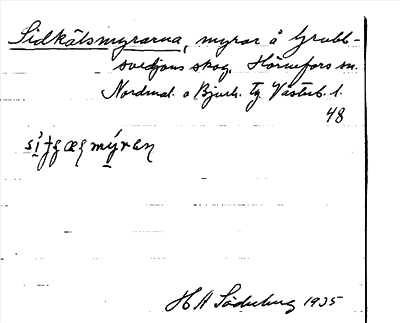 Sidkätsmyrarna, myrar å Grubb-
svedjans skog. Hörnefors sn.
Nordmal. o Bjurh. tg Västerb. l.
48
H A Söderberg 1935